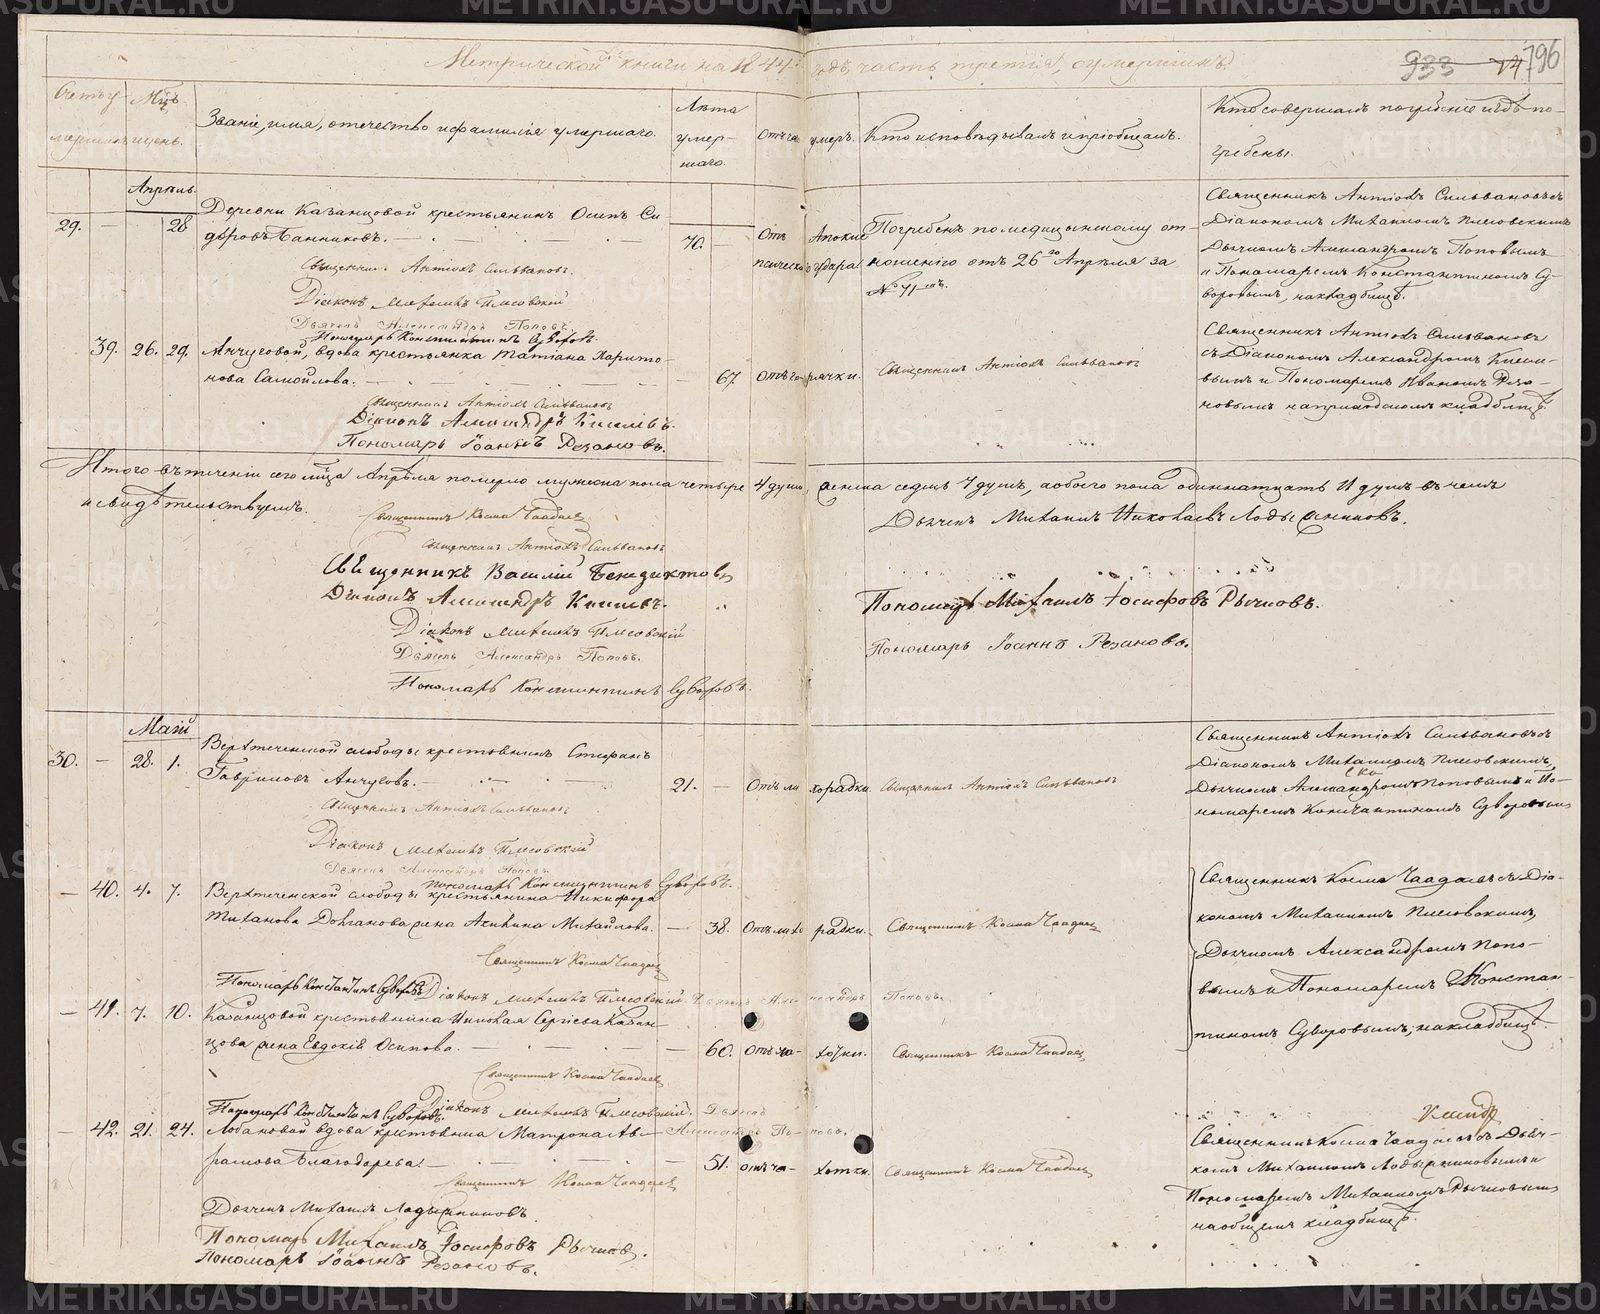 Метрической книги на 1844 годъ, часть третія, о умершихъ.
933 74 796
Счетъ умершихъ
Мѣсяцъ и день.
Званіе, имя, отечество и фамилія умершаго.
Лѣта
умер-
шаго.
Отъ чего умеръ.
Кто исповѣдывалъ и пріобщалъ.
Кто совершалъ погребеніе и гдѣ по-
гребены.
Апрѣль
29. — 28
Деревни Казанцовой крестьянинъ Осипъ Си
доровъ Банниковъ.
70. —
Отъ Апокле
псическаго удара
Погребенъ по медицынскому от-
ношенію отъ 26го Апрѣля за
№ 71мъ.
Священникъ Антіохъ Сильвановъ съ
Діакономъ Михаиломъ Плесовскимъ
Дьячкомъ Александромъ Поповымъ
и Пономаремъ Константиномъ Су-
воровымъ, на кладбищѣ.
Священникъ Антіохъ Сильвановъ.
Діаконъ Михаилъ Плесовскій
Дьячекъ Александръ Поповъ.
Пономарь Константинъ Суворовъ.
39. 26. 29.
Анчуговой, вдова крестьянка Татіана Харито-
нова Самойлова.
67.
отъ горячки.
Священникъ Антіохъ Сильвановъ
Священникъ Антіохъ Сильвановъ
съ Діакономъ Александромъ Кисе-
вымъ и Пономаремъ Иваномъ Реза-
новымъ на приходскомъ кладбищѣ.
Священникъ Антіохъ Сильвановъ
Діаконъ Александръ
Пономарь Іоаннъ Резановъ.
Итого въ теченіи сего мѣсяца Апрѣля померло мужеска пола четыре 4 души, женска седмь 7 душъ, а обоего пола одиннатцать 11 душъ въ чемъ
и свидѣтельствуемъ.
Священникъ Косма Чаадаевъ
Священникъ Антіохъ Сильвановъ
Священникъ Василій Бенедиктовъ
Діаконъ Александръ
Діаконъ Михаилъ Плесовскій
Дьячекъ Александръ Поповъ.
Пономарь Константинъ Суворовъ.
Дьячекъ Михаилъ Николаевъ Ладыжниковъ.
Пономарь Михаилъ Іосифовъ Рычковъ.
Пономарь Іоаннъ Резановъ.
Маій
30. — 28. 1.
Верхтеченской слободы крестьянинъ Стефанъ
Гавриловъ Анчуговъ.
21. —
Отъ лихорадки.
Священникъ Антіохъ Сильвановъ
Священникъ Антіохъ Сильвановъ съ
Діакономъ Михаиломъ Плесовскимъ,
Дьячкомъ Александромъ Поповымъ и По-
номаремъ Константиномъ Суворовымъ
Священникъ Антіохъ Сильвановъ
Діаконъ Михаилъ Плесовскій
Дьячекъ Александръ Поповъ
Пономарь Константинъ Суворовъ.
— 40. 4. 7.
Верхтеченской слободы крестьянина Никифора
Тиханова Довганова жена Акилина Михайлова.
38.
Отъ лихорадки.
Священникъ Косма Чаадаевъ
Священникъ Косма Чаадаевъ съ Діа-
кономъ Михаиломъ Плесовскимъ,
Дьячкомъ Александромъ Попо-
вымъ и Пономаремъ Констан-
тиномъ Суворовымъ, на кладбищѣ.
Священникъ Косма Чаадаевъ
Пономарь Константинъ Суворовъ Діаконъ Михаилъ Плесовскій Дьячекъ Александръ Поповъ.
— 41. 7. 10.
Казанцовой крестьянина Николая Сергіева Казан-
цова жена Евдокія Осипова.
60.
отъ чахотки.
Священникъ Косма Чаадаевъ
Священникъ Косма Чаадаевъ
Пономарь Константинъ Суворовъ. Діаконъ Михаилъ Плесовскій. Дьячекъ
Александръ Поповъ.
— 42. 21. 24.
Лобановой вдова крестьянка Матрона Ав-
рамова Благодарева.
51.
отъ чахотки.
Священникъ Косма Чаадаевъ
Священникъ Косма Чаадаевъ съ Дьяч-
комъ Михаиломъ Ладыжниковымъ и
Пономаремъ Михаиломъ Рычковымъ
на общемъ кладбищѣ.
Священникъ Косма Чаадаевъ
Дьячекъ Михаилъ Ладыжниковъ
Пономарь Михаилъ Іосифовъ Рычковъ.
Пономарь Іоаннъ Резановъ.
METRIKI.GASO-URAL.RU